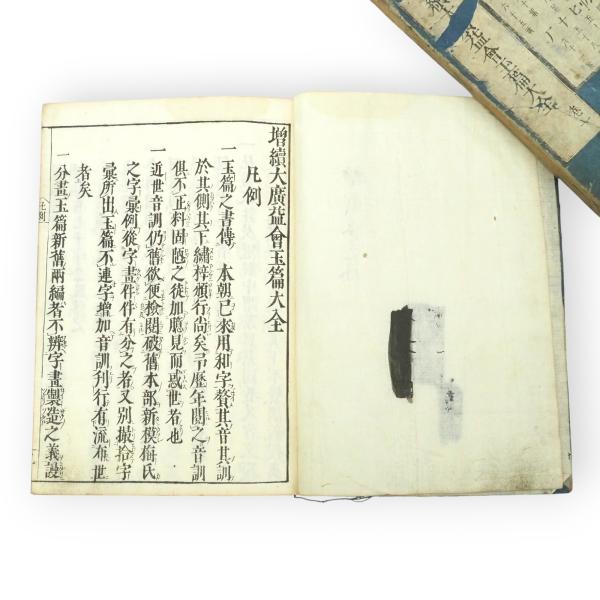 増續大廣益會玉篇大全
凡例
一玉篇之書傳 本朝已來用和字贅其音其訓
於其側其下繡梓頒行尚矣弟歷年閱之音訓
俱不正料固陋之徒加聽見而惑世若也
一近世音訓仍舊欲便撿閱破舊本部新模梅氏
之字彙例從字畫件件有分之者又別撮拾字
彙所出玉篇不連字增加音訓刊行有流布世
者矣
一分畫玉篇新舊兩編者不辨字畫製造之義謾
凡例
益會玉篇大全